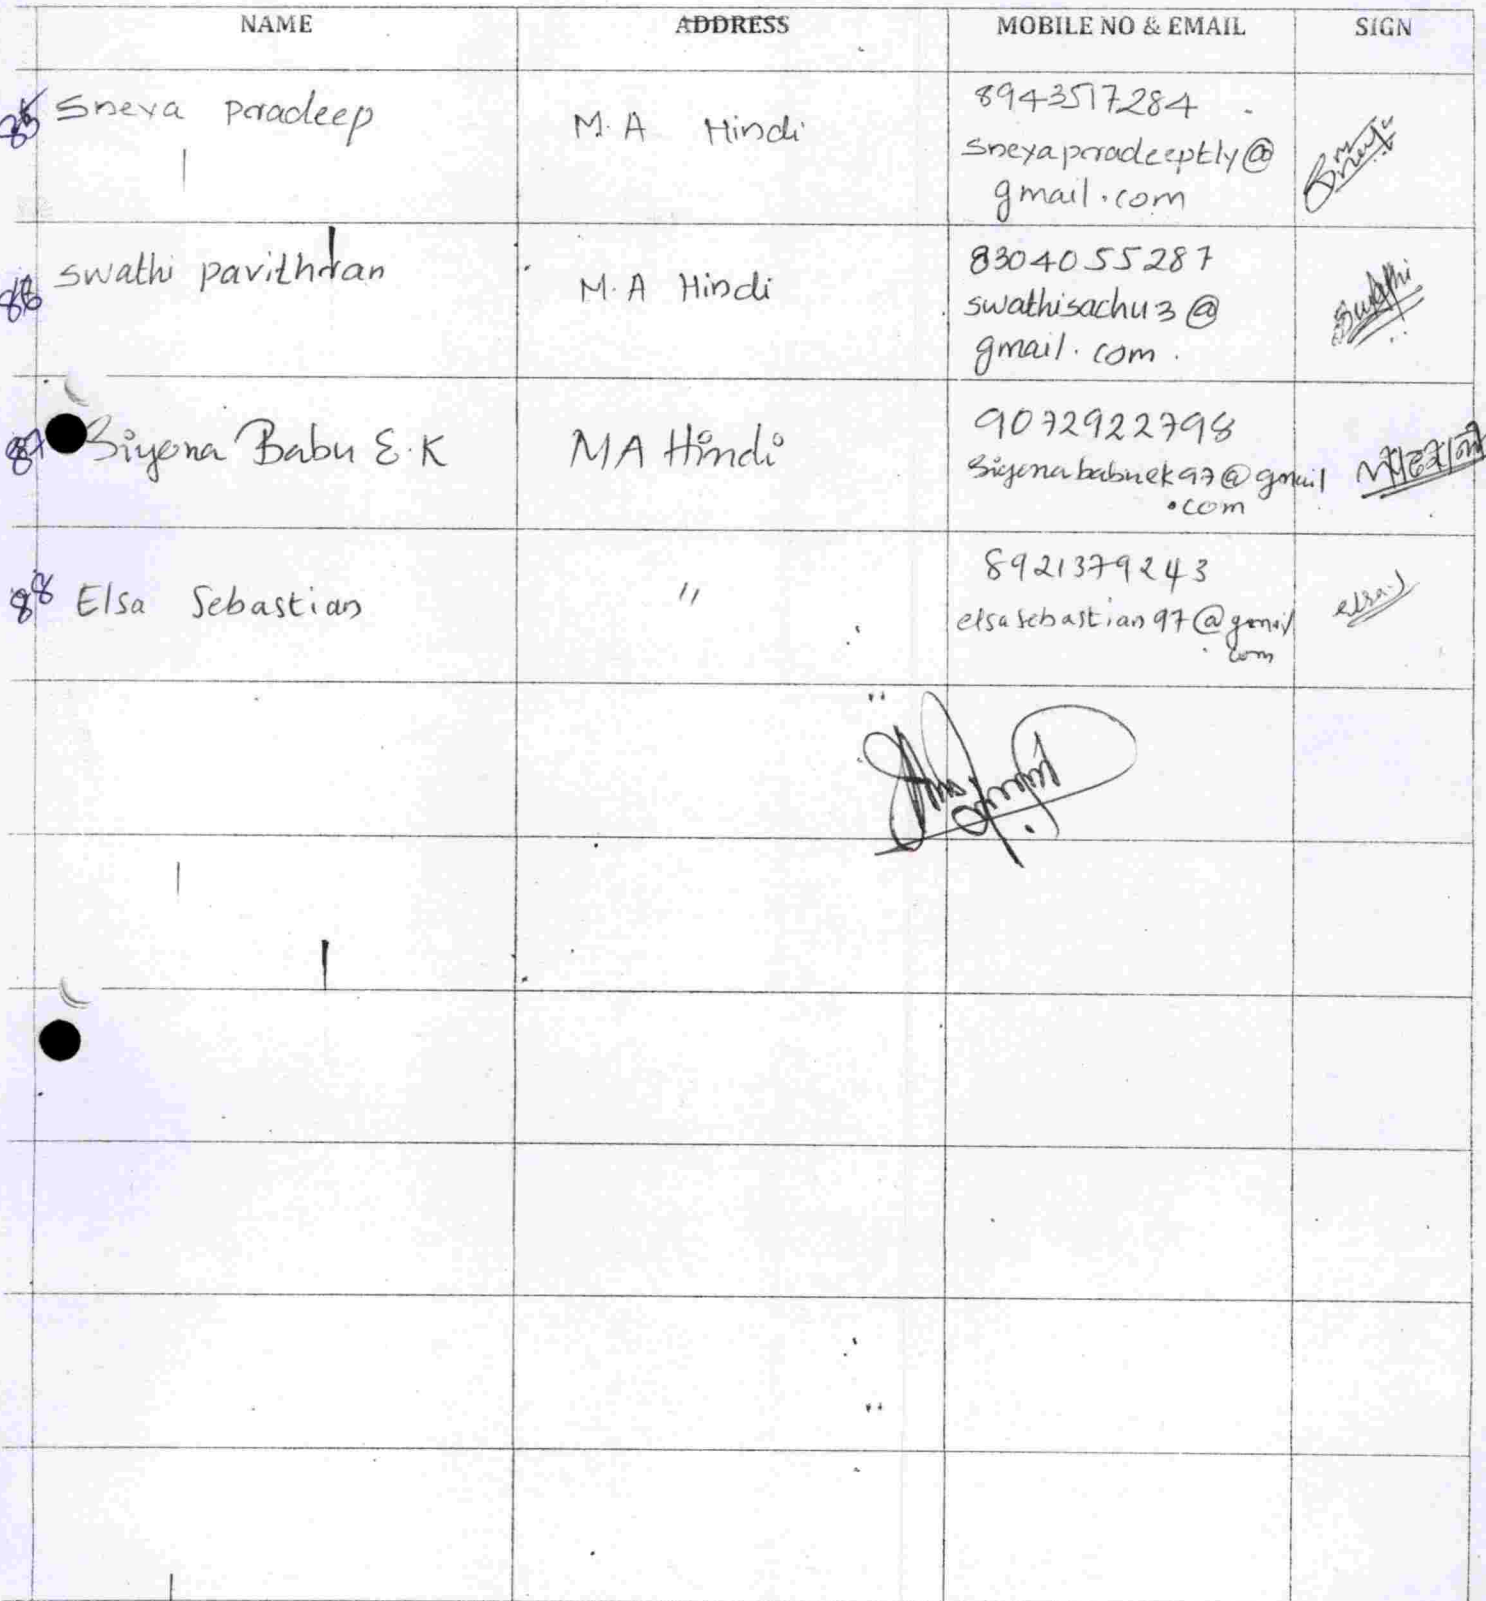 NAME ADDRESS MOBILE NO & EMAIL SIGN
85 Sneya Pradeep M.A Hindi 8943517284
sneyapradeepkly@
gmail.com
86 Swathi pavithran M.A Hindi 8304055287 Swathi
swathisachu3@
gmail.com.
87 Siyona Babu E.K MA Hindi 9072922798
Siyonababuek97@gmail
.com
88 Elsa Sebastian " 8921379243 elsa
elsasebastian97@gmail
.com